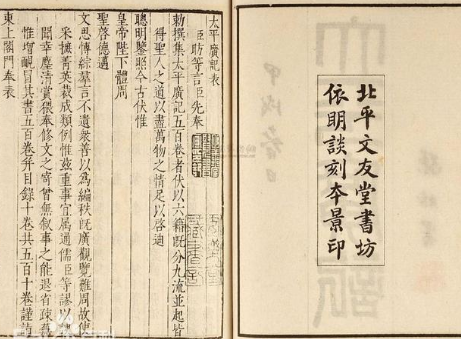 北平文友堂書坊
依明談刻本景印
太平廣記表
臣昉等言臣先奉
勅撰集太平廣記五百卷者伏以六籍既分九流並起皆
得聖人之道以盡萬物之情足以啓迪
聰明鑒照今古伏惟
皇帝陛下體周
聖啓德邁
文思博綜羣言不遺衆善以為編秩既廣觀覽難周故使
采摭菁英裁成類例惟茲重事宜屬通儒臣等謬以
聞幸塵清賞猥奉修文之寄曾無叙事之能退省疎蕪
惟增靦冒其書五百卷并目錄十卷共五百十卷謹詣
東上閤門奉表